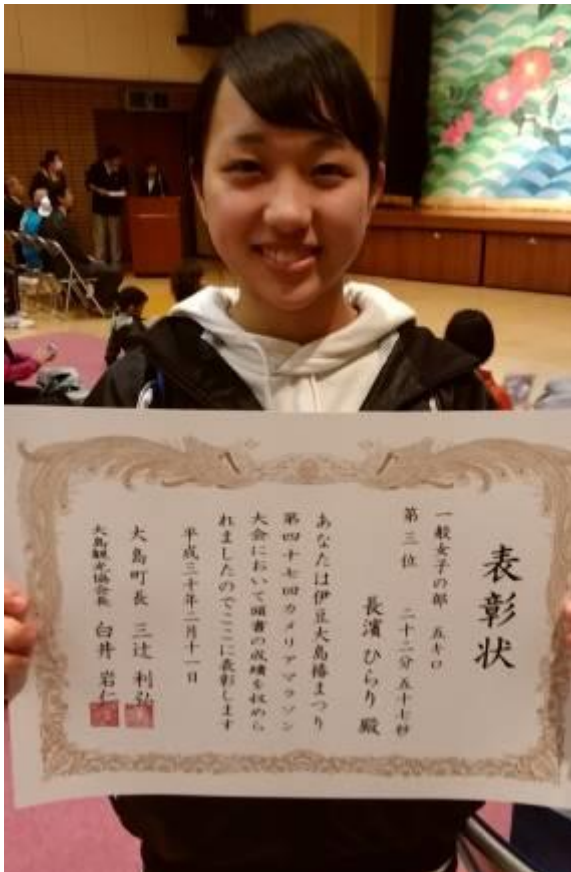 表彰状
一般女子の部　五キロ
第三位　二十二分五十七秒
長濱ひらり殿
あなたは伊豆大島椿まつり
第四十七回カメリアマラソン
大会において頭書の成績を収めら
れましたのでここに表彰します
平成三十年二月十一日
大島町長　三辻利弘
大島観光協会長　白井岩仁